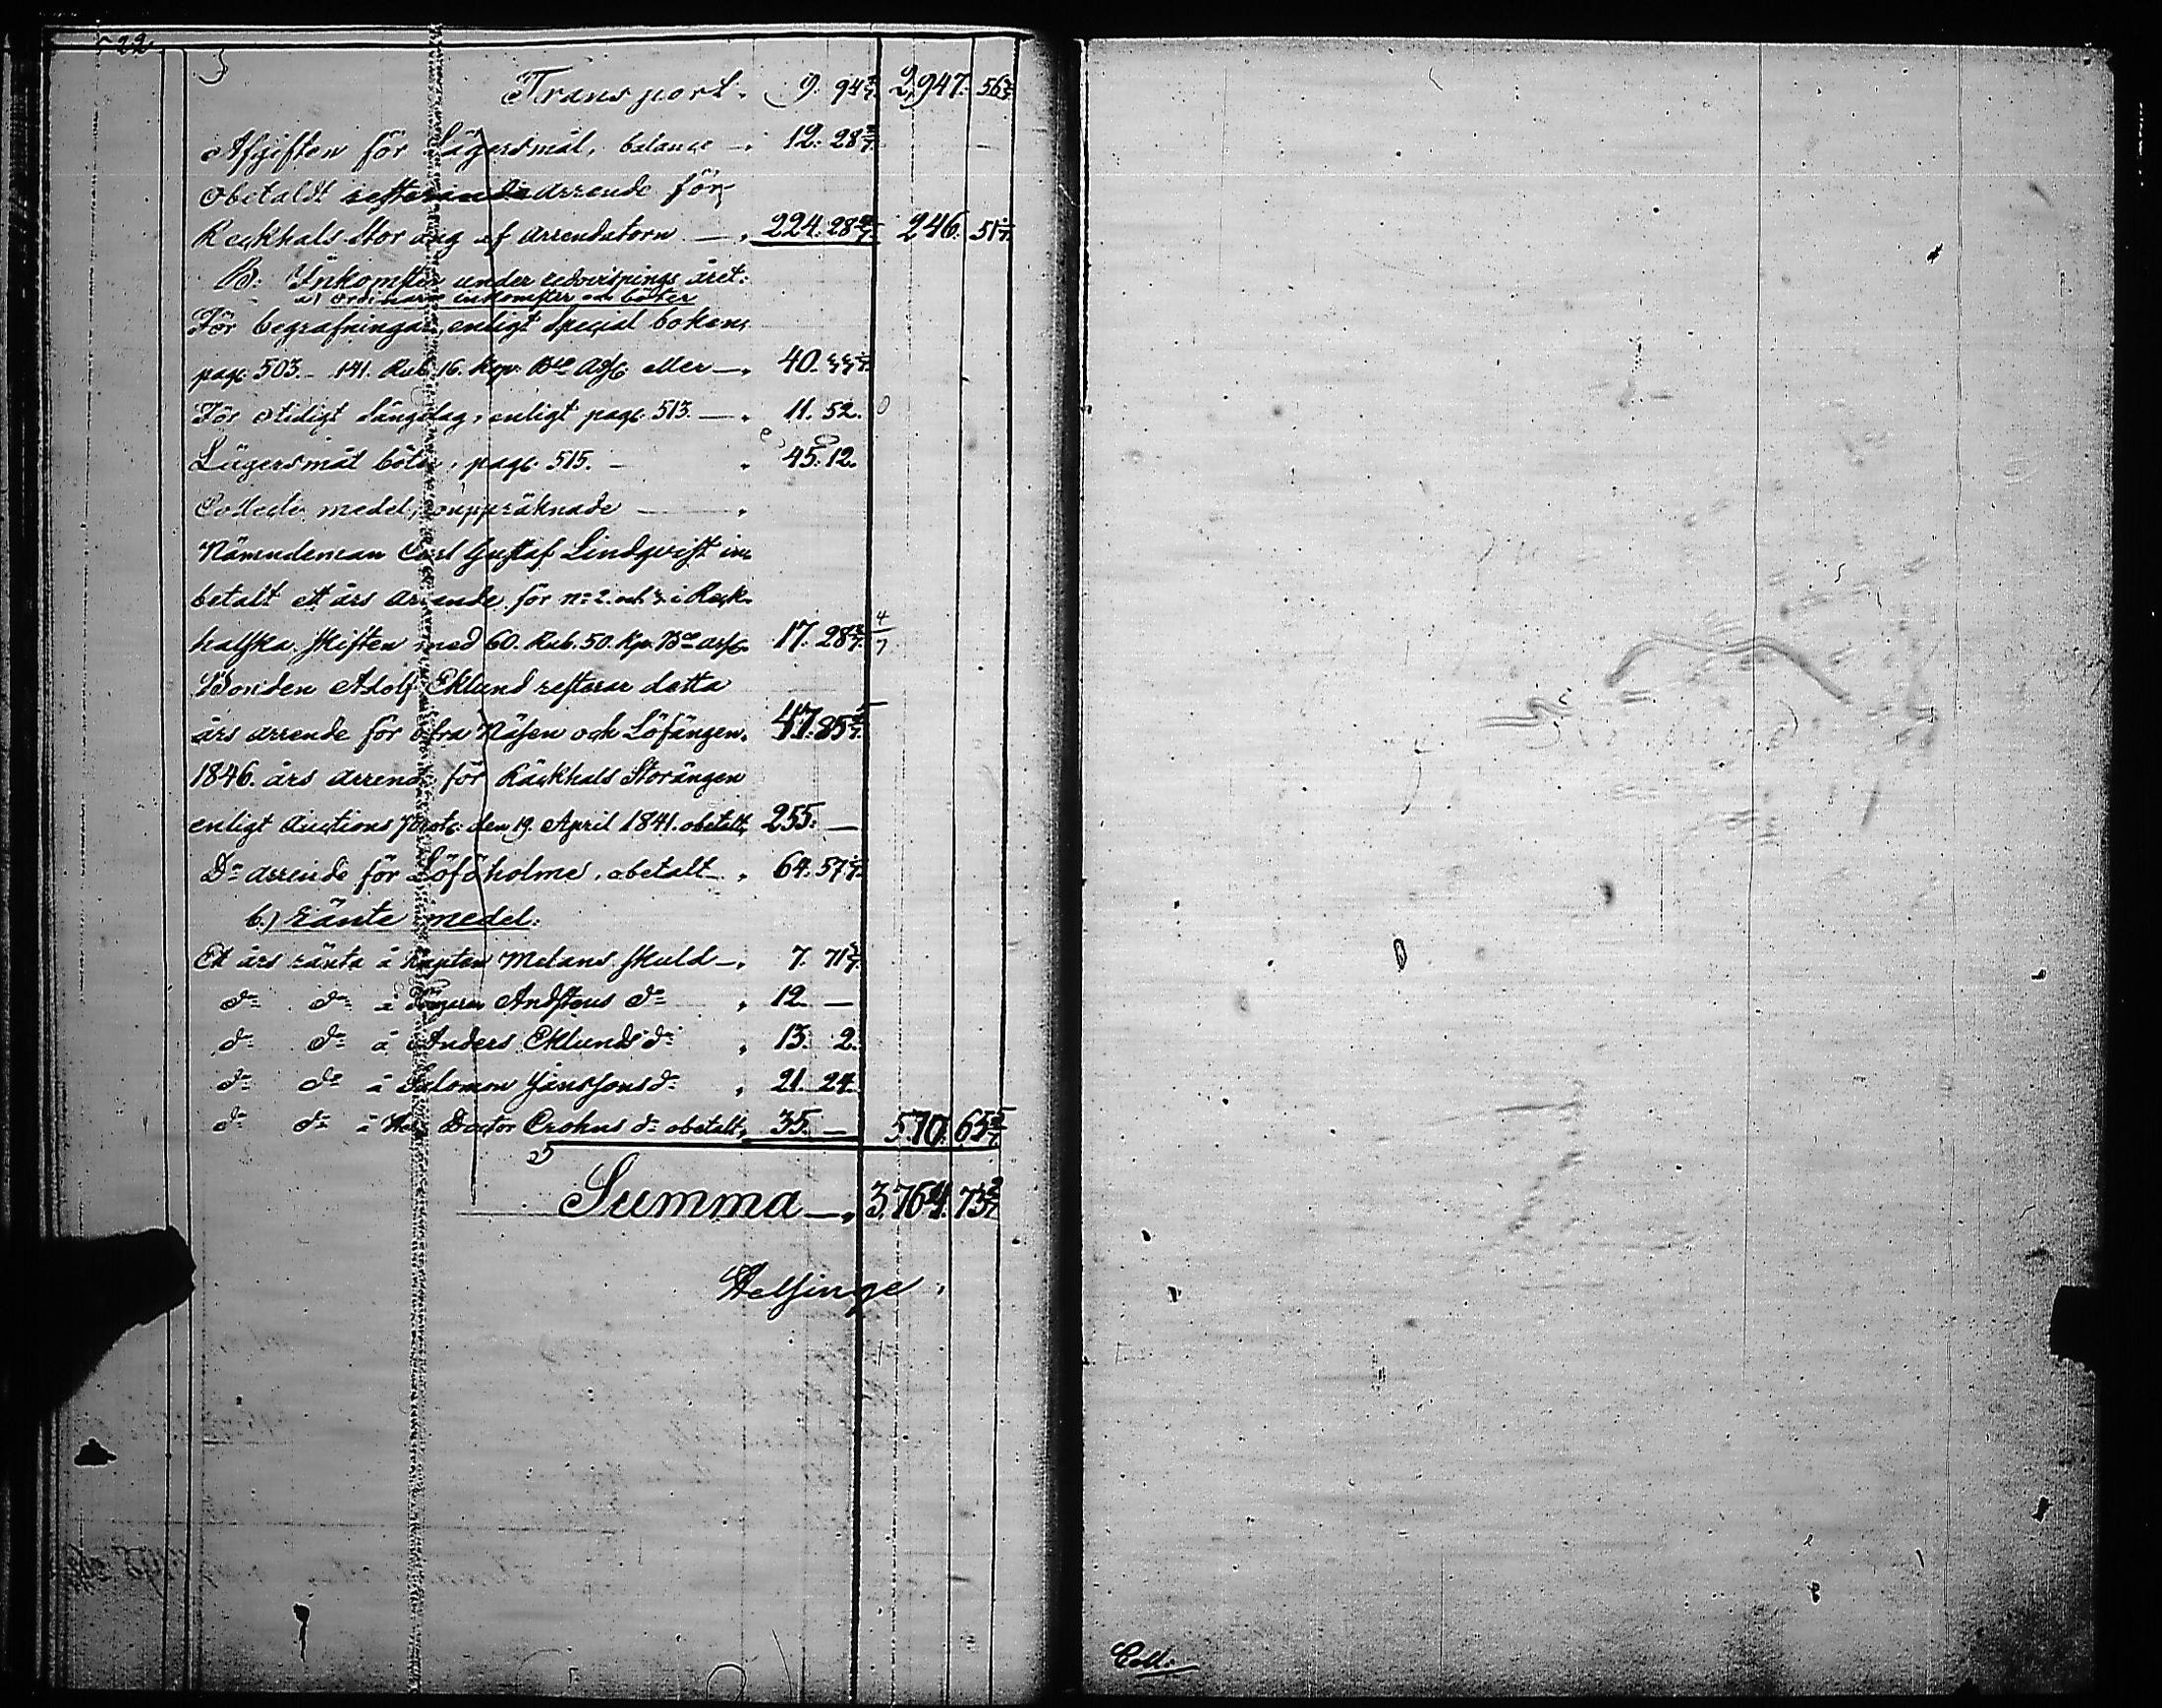 522.
Transport. 9. 94 2/7. 2,947. 56 4/7
Afgiften för Lägersmål, balance —. 12. 28 4/7.
obetaldt resterande arrende för
Reckhals Storäng af arrendatorn —. 224. 28 4/7. 246. 51 3/7.
B: Inkomster under redovisnings året:
a) Ordinarie inkomster och böter
För begrafningar, enligt Special boken,
page 503. — 141. Rub. 16. Kop. Bco Ass. eller —. 40. 33 1/7.
För otidigt sängelag, enligt page. 513. —. 11. 52.
Lägersmål böter, page. 515. — . 45. 12.
Collecte medel, ouppräknade — .
Nämndeman Carl Gustaf Lindqvist in-
betalt ett års arrende för No 2. och 3. i Reck-
halska skiften med 60. Rub. 50. Kp. Bco ass. 17. 28 4/7.
4/7
Bonden Adolf Eklund resterar detta
års arrende för öfra Näsen och Löfängen. 47. 85 5/7.
1846. års arrende för Räckhals Storängen
enligt Auctions Prot: den 19. April 1841. obetalt, 255. —
Do arrende för Löföholme, obetalt . 64. 57 1/7.
b.) ränte medel:
Ett års ränta å Kapten Melans skuld —. 7. 71 3/7.
do do å Andstens do . 12. —
do do å Anders Eklunds do . 13. 2.
do do å Salomon Jänssons do . 21. 24.
do do å Herr Doctor Crohns do obetalt, 35. — 570. 65 5/7.
Summa —. 3,764. 73 5/7
Helsinge.
Coll.